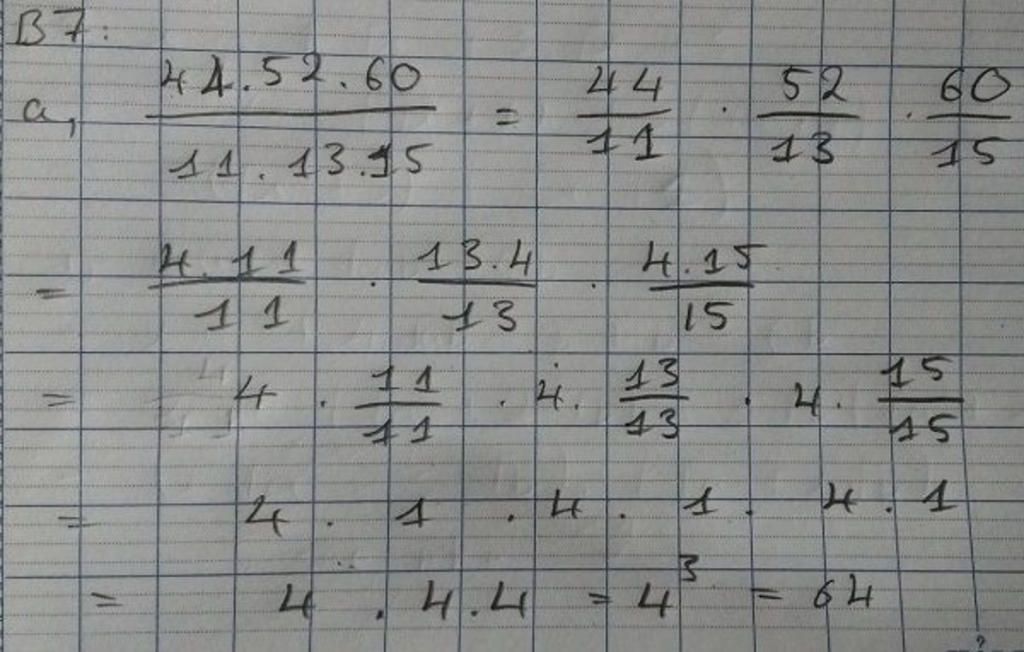 B7:
a, 44.52.60 / 11.13.15 = 44/11 . 52/13 . 60/15
= 4.11/11 . 13.4/13 . 4.15/15
= 4 . 11/11 . 4. 13/13 . 4. 15/15
= 4 . 1 . 4 . 1 . 4 . 1
= 4 . 4.4 = 4³ = 64